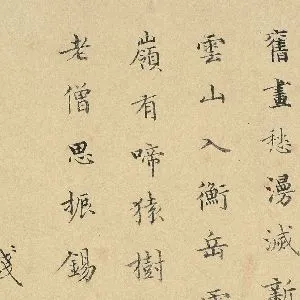 舊畫愁漫滅新
雲山入衡岳
嶺有啼猿樹
老僧思振錫